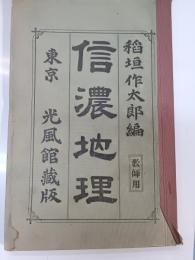 稲垣作太郎編
教師用
信濃地理
東京 光風館蔵版